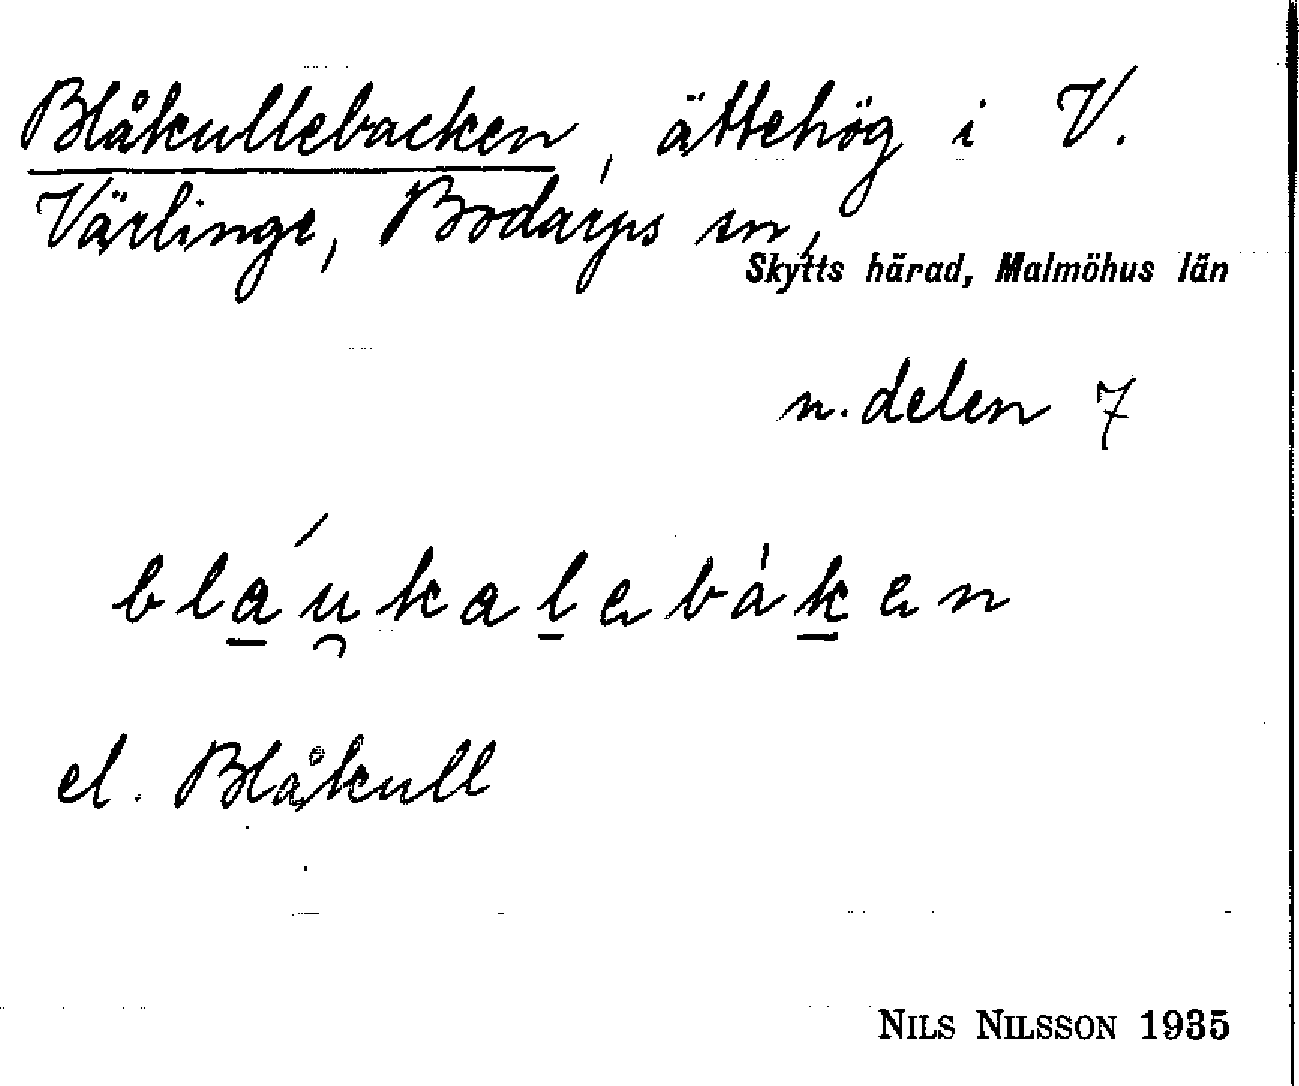 Blåkullebacken, ättehög i V.
Värlinge, Bodarps sn,
Skytts härad, Malmöhus län
n. delen 7
bla̱ú̯kaḻebàḵen
el. Blåkull
NILS NILSSON 1935